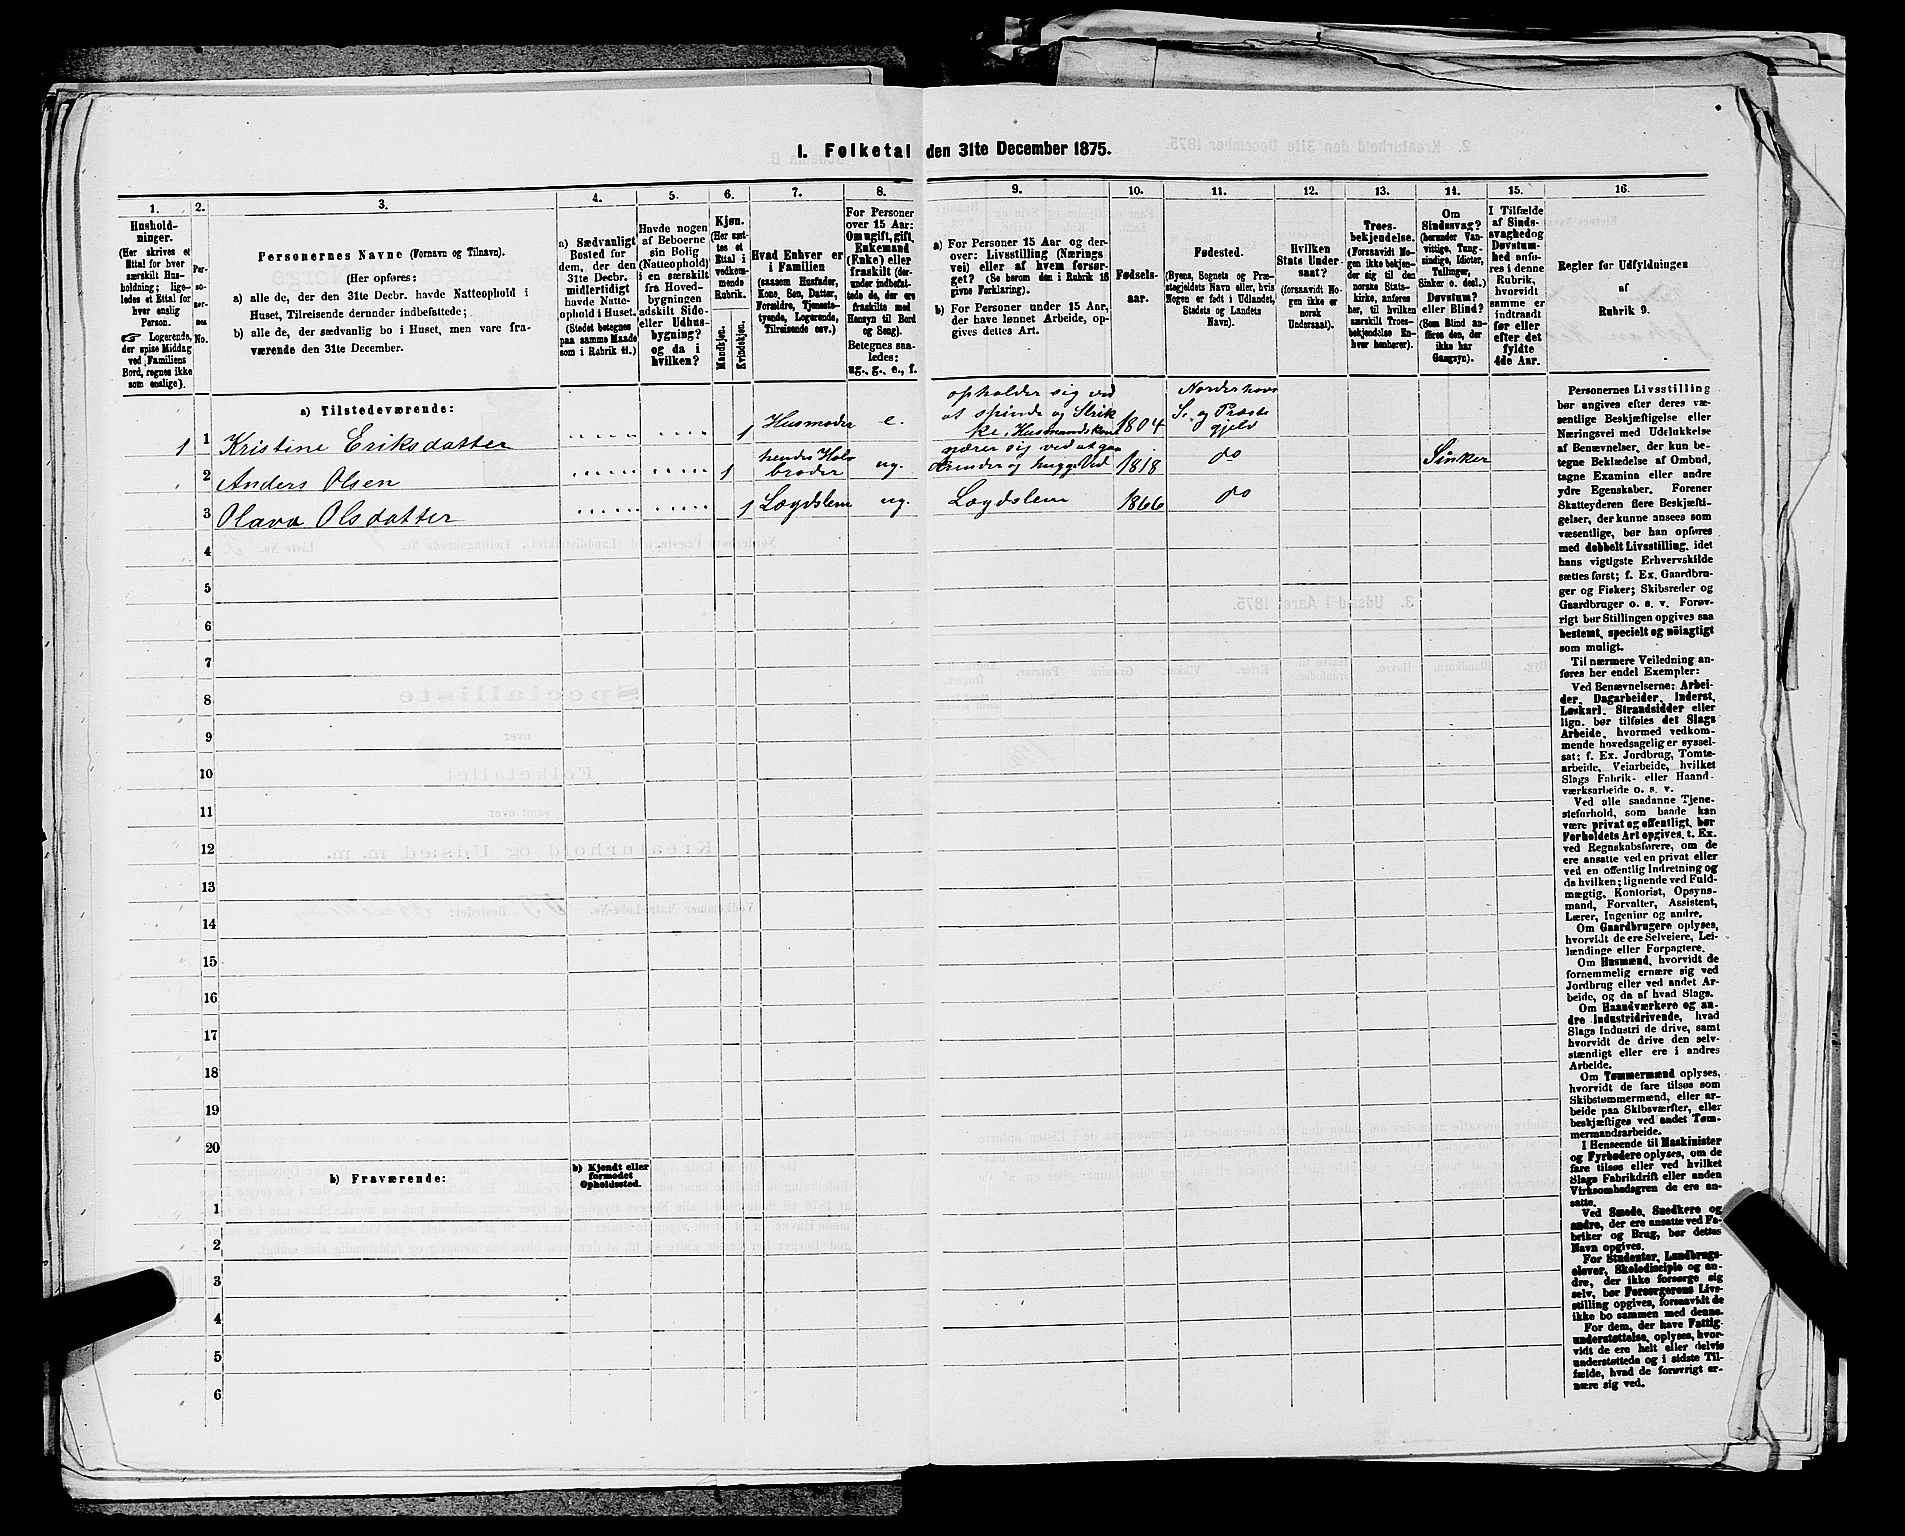 I. Folketal den 31te December 1875.
1.
Hushold-
ninger.
(Her skrives et
Ettal for hver
særskilt Hus-
holdning; lige-
ledes et Ettal for
hver enslig
Person.
☞ Logerende,
der spise Middag
ved Familiens
Bord, regnes ikke
som enslige).
2.
Per-
so-
ner-
nes
No.
3.
Personernes Navne (Fornavn og Tilnavn).
(Her opføres:
a) alle de, der den 31te Decbr. havde Natteophold i
Huset, Tilreisende derunder indbefattede;
b) alle de, der sædvanlig bo i Huset, men vare fra-
værende den 31te December.
4.
a) Sædvanligt
Bosted for
dem, der den
31te Decbr.
midlertidigt
havde Natte-
ophold i Huset.
(Stedet betegnes
paa samme Maade
som i Rubrik 11.)
5.
Havde nogen
af Beboerne
sin Bolig
(Natteophold)
i en særskilt
fra Hoved-
bygningen
adskilt Side-
eller Udhus-
bygning?
og da i
hvilken?
6.
Kjøn.
(Her sæt-
tes et
Ettal i
vedkom-
mende
Rubrik.
Mandkjøn.
Kvindekjøn.
7.
Hvad Enhver er
i Familien
(saasom Husfader,
Kone, Søn, Datter,
Forældre, Tjeneste-
tyende, Logerende,
Tilreisende osv.)
8.
For Personer
over 15 Aar:
Om ugift, gift,
Enkemand
(Enke) eller
fraskilt (der-
under indbefat-
tede de, der ere
fraskilte med
Hensyn til Bord
og Seng).
Betegnes saa-
ledes:
ug., g., e., f.
9.
a) For Personer 15 Aar og der-
over: Livsstilling (Nærings
vei) eller af hvem forsør-
get? (Se herom den i Rubrik 16
givne Forklaring).
b) For Personer under 15 Aar,
der have lønnet Arbeide, op-
gives dettes Art.
10.
Fødsels-
aar.
11.
Fødested.
(Byens, Sognets og Præ-
stegjeldets Navn eller, hvis
Nogen er født i Udlandet,
Stedets og Landets
Navn).
12.
Hvilken
Stats Under-
saat?
(forsaavidt No-
gen ikke er
norsk
Undersaat).
13.
Troes-
bekjendelse.
(Forsaavidt No-
gen ikke bekjen-
der sig til den
norske Stats-
kirke, anføres
her, til hvilken
særskilt Troes-
bekjendelse En-
hver henhører).
14.
Om
Sindssvag?
(herunder Van-
vittige, Tung-
sindige, Idioter,
Tullinger,
Sinker o. desl.)
Døvstum?
eller Blind?
(Som Blind an-
føres den, der
ikke har
Gangsyn).
15.
I Tilfælde
af Sinds-
svaghed og
Døvstum-
hed anfø-
res i denne
Rubrik,
hvorvidt
samme er
indtraadt
før eller
efter det
fyldte
4de Aar.
16.
Regler for Udfyldningen
af
Rubrik 9.
a) Tilstedeværende:
1 1 Kristine Eriksdatter 1 Husmoder e. opholder sig ved at spinde og Strikke, 1804 Norderhovs S. og Præstegjeld
2 Anders Olsen 1 hendes Halvbroder ug. nærer sig ved at gaa Ærinder og hugge Ved 1818 do Sinker
3 Olava Olsdatter 1 Lægdslem ug. Lægdslem 1866 do
4
5
6
7
8
9
10
11
12
13
14
15
16
17
18
19
20
b) Fraværende:
b) Kjendt eller
formodet
Opholdssted.
1
2
3
4
5
6
Personernes Livsstilling
bør angives efter deres væ-
sentlige Beskjæftigelse eller
Næringsvei med Udelukkelse
af Benævnelser, der kun be-
tegne Beklædelse af Ombud,
tagne Examina eller andre
ydre Egenskaber. Forener
Skatteyderen flere Beskjæfti-
gelser, der kunne ansees som
væsentlige, bør han opføres
med dobbelt Livsstilling, idet
hans vigtigste Erhvervskilde
sættes først; f. Ex. Gaardbru-
ger og Fisker; Skibsreder og
Gaardbruger o. s. v. Forøv-
rigt bør Stillingen opgives saa
bestemt, specielt og nöiagtigt
som muligt.
Til nærmere Veiledning an-
føres her endel Exempler:
Ved Benævnelserne: Arbei-
der, Dagarbeider, Inderst,
Løskarl, Strandsidder eller
lign. bør tilføies det Slags
Arbeide, hvormed vedkom-
mende hovedsagelig er syssel-
sat; f. Ex. Jordbrug, Tomte-
arbeide, Veiarbeide, hvilket
Slags Fabrik- eller Haand-
værksarbeide o. s. v.
Ved alle saadanne Tjene-
steforhold, som baade kan
være privat og offentligt, bør
Forholdets Art opgives, t. Ex.
ved Regnskabsførere, om de
ere ansatte ved en privat eller
ved en offentlig Indretning og
da hvilken; lignende ved Fuld-
mægtig, Kontorist, Opsyns-
mand, Forvalter, Assistent,
Lærer, Ingeniør og andre.
Om Gaardbrugere oplyses,
hvorvidt de ere Selveiere, Lei-
lændinge eller Forpagtere.
Om Husmænd, hvorvidt de
fornemmelig ernære sig ved
Jordbrug eller ved andet Ar-
beide, og da af hvad Slags.
Om Haandværkere og an-
dre Industridrivende, hvad
Slags Industri de drive, samt
hvorvidt de drive den selv-
stændigt eller ere i andres
Arbeide.
Om Tømmermænd oplyses,
hvorvidt de fare tilsøs som
Skibstømmermænd, eller ar-
beide paa Skibsværfter, eller
beskjæftiges ved andet Tøm-
mermandsarbeide.
I Henseende til Maskinister
og Fyrbødere oplyses, om de
fare tilsøs eller ved hvilket
Slags Fabrikdrift eller anden
Virksomhedsgren de ere an-
satte.
Ved Smede, Snedkere og
andre, der ere ansatte ved Fa-
briker og Brug, bør dettes
Navn opgives.
For Studenter, Landbrugs-
elever, Skoledisciple og an-
dre, der ikke forsørge sig
selv, bør Forsørgerens Livs-
stilling opgives, forsaavidt de
ikke bo sammen med denne.
For dem, der have Fattig-
understøttelse, oplyses, hvor-
vidt de ere helt eller delvis
understøttede og i sidste Til-
fælde, hvad de forøvrigt er-
nære sig ved.